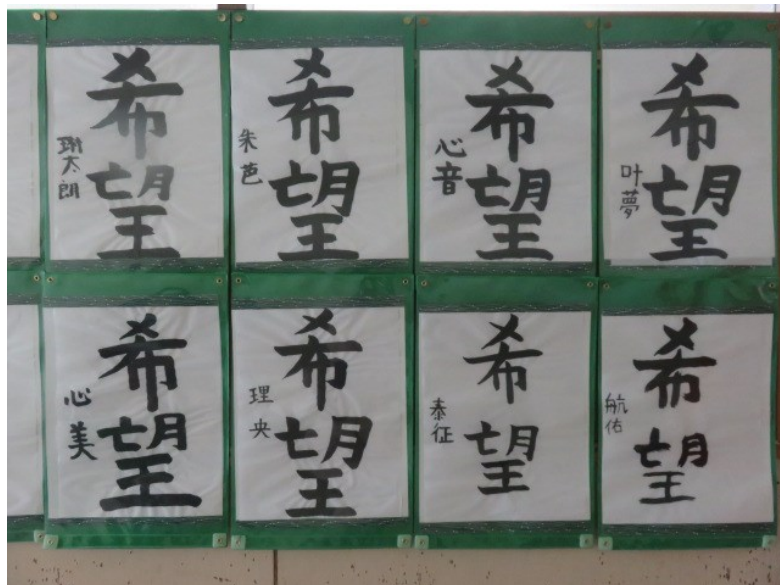 希望
翔太朗
希望
朱芭
希望
心音
希望
叶夢
希望
心美
希望
理央
希望
泰征
希望
航佑